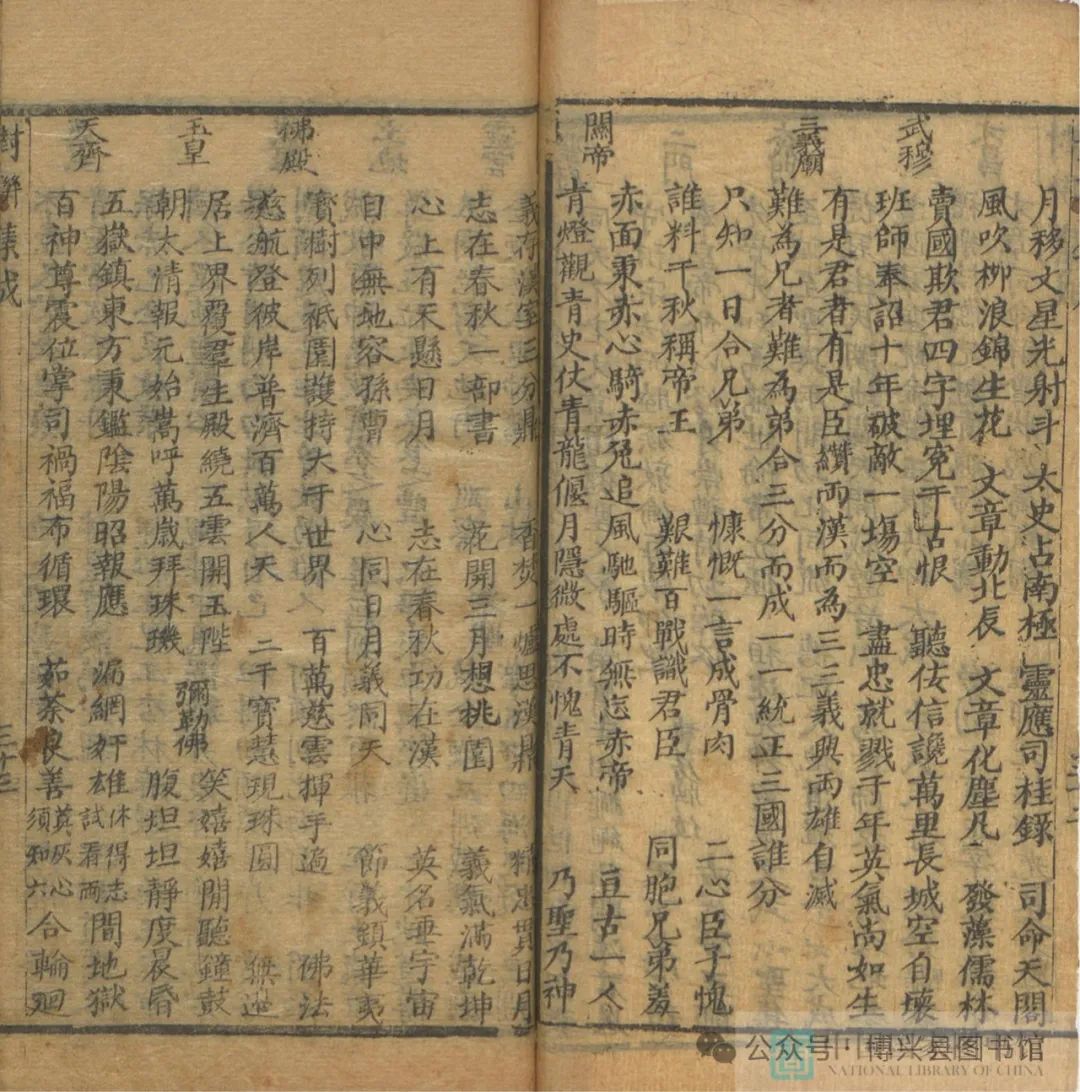 月移文星光射斗 太史占南極 靈應司桂錄 司命天閣
風吹柳浪錦生花 文章動北辰 文章化塵凡 發藻儒林
武穆
賣國欺君四字埋寃千古恨 聽佞信讒萬里長城空自壞
班師奉詔十年破敵一塲空 盡忠就戮千年英氣尚如生
三義廟
有是君者有是臣續兩漢而為三三義興兩雄自滅
難為兄者難為弟合三分而成一一統正三國誰分
只知一日合兄弟 慷慨一言成骨肉 二心臣子愧
誰料千秋稱帝王 艱難百戰識君臣 同胞兄弟羞
關帝
赤面秉赤心騎赤兔追風馳驅時無忘赤帝 亘古一人
青燈觀青史仗青龍偃月隱微處不愧青天 乃聖乃神
義存漢室三分鼎 香焚一爐思漢鼎 精忠貫日月
志在春秋一部書 花開三月想桃園 義氣滿乾坤
心上有天懸日月 志在春秋功在漢 英名垂宇宙
目中無地容孫曹 心同日月義同天 節義鎮華夷
佛殿
寶樹列祇園護持大千世界 百萬慈雲揮手過 佛法
慈航登彼岸普濟百萬人天 二千寶慧現珠圓 無邊
玉皇
居上界覆羣生殿繞五雲開玉陛 彌勒佛 笑嬉嬉閒聽鐘鼓
朝太清報元始嵩呼萬歲拜珠璣 腹坦坦靜度晨昏
天齊
五嶽鎮東方秉鑑陰陽昭報應 漏網奸雄休得志試看兩間地獄
百神尊震位掌司禍福布循環 茹荼良善莫灰心須知六合輪迴
對聯集成 三十三
公众号·博兴县图书馆
NATIONAL LIBRARY OF CHINA